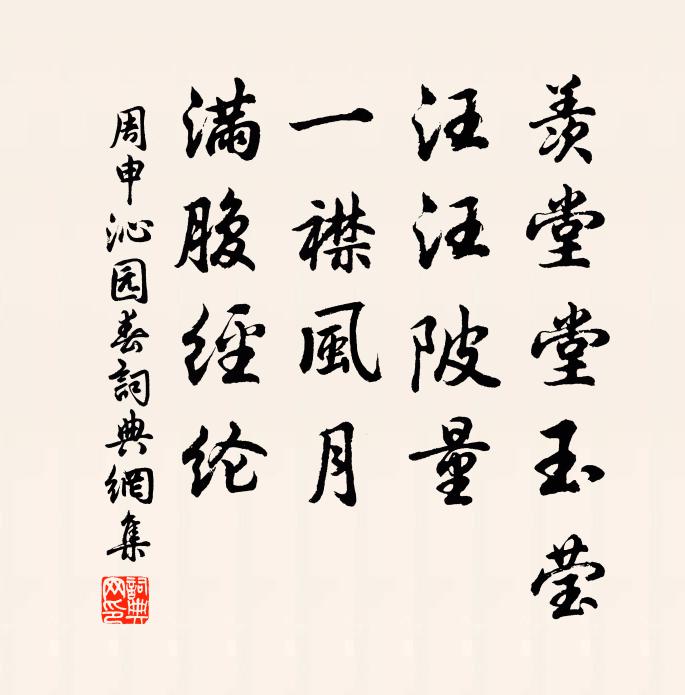 羨堂堂玉莹
汪汪陂量
一襟風月
滿腹經纶
周申沁园春詞典網集
詞典网印